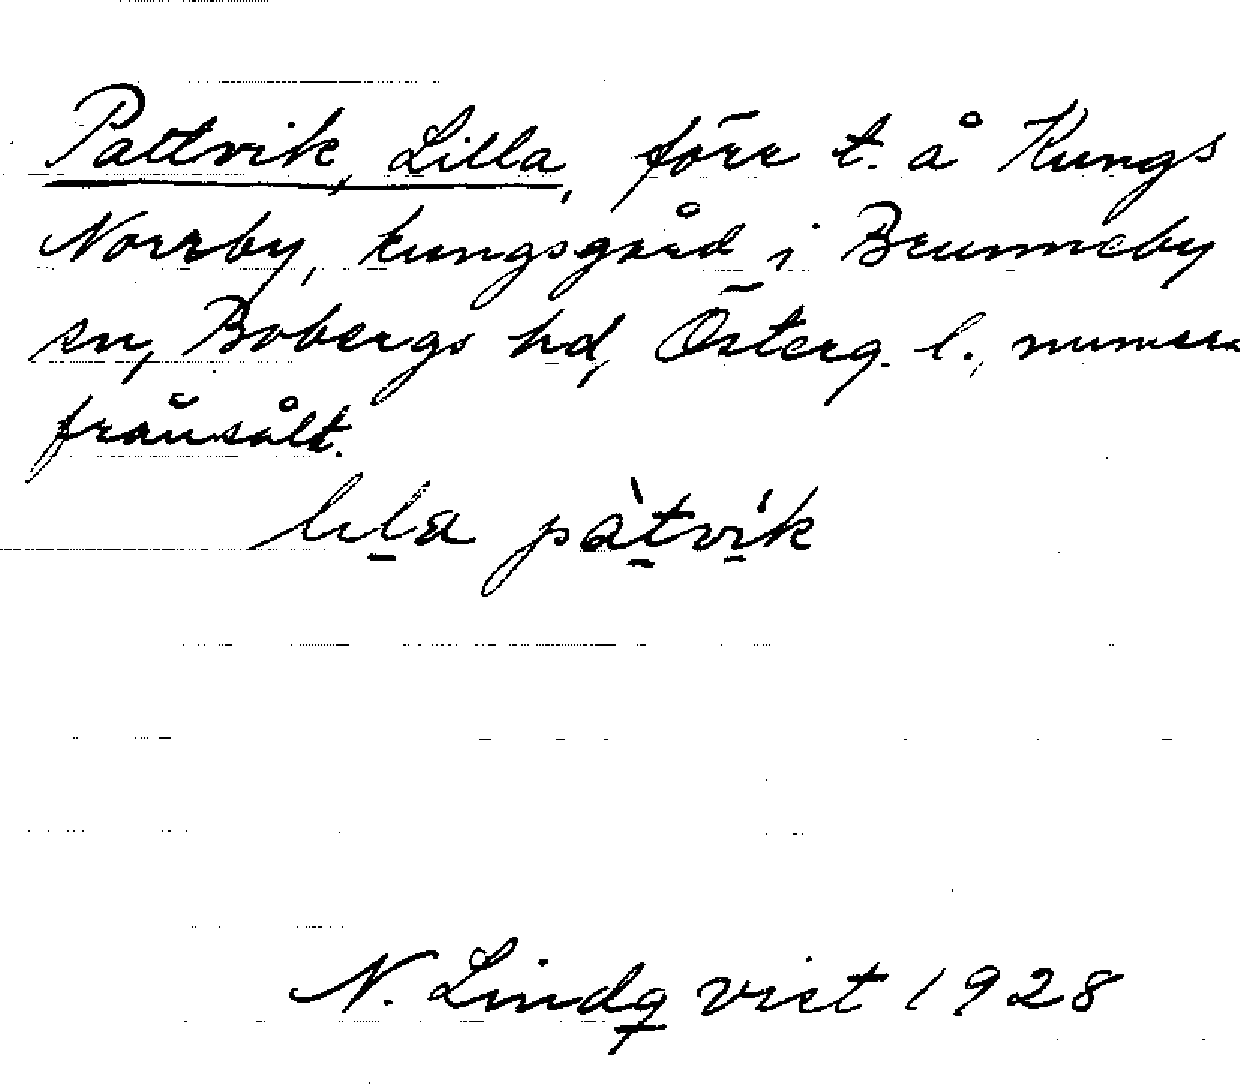 Pattvik, Lilla, förr t. å Kungs
Norrby, kungsgård i Brunneby
sn, Bobergs hd, Österg. l., numera
frånsålt.
lila pàtvík
N. Lindqvist 1928